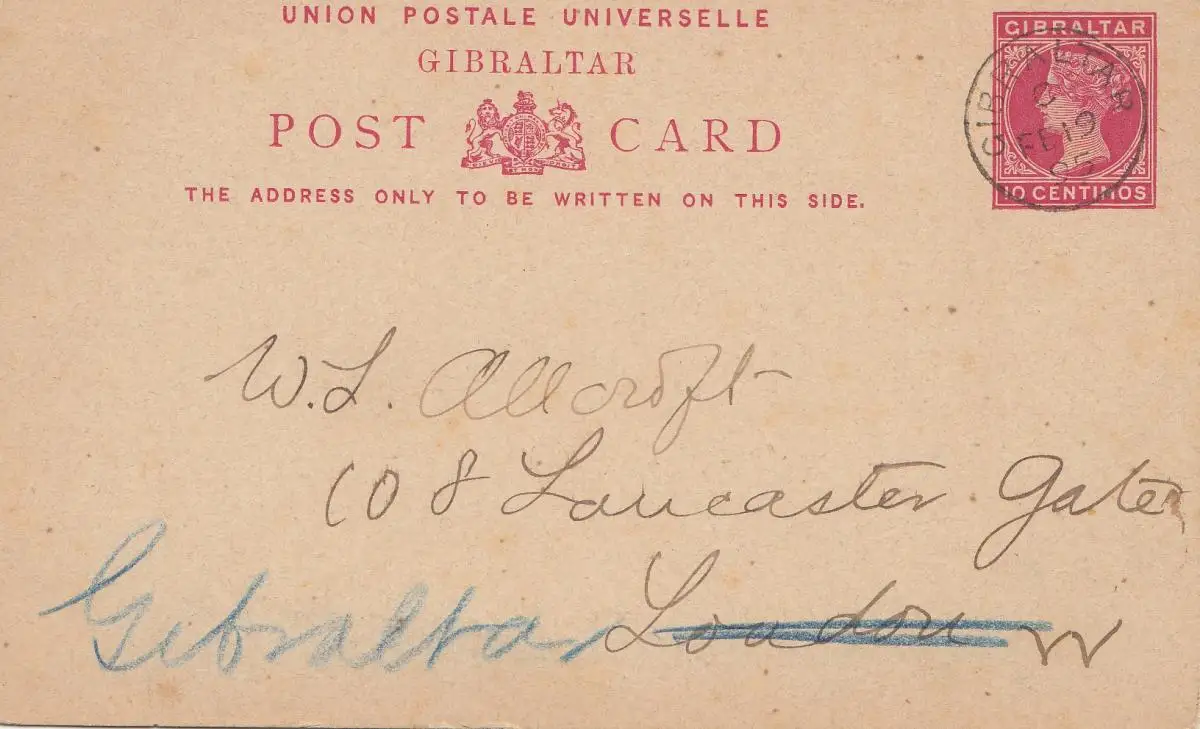 UNION POSTALE UNIVERSELLE
GIBRALTAR
POST CARD
THE ADDRESS ONLY TO BE WRITTEN ON THIS SIDE.
GIBRALTAR
10 CENTIMOS
GIBRALTAR
C
FE 19
W. L. Allcroft
108 Lancaster Gate
London W
Gibraltar